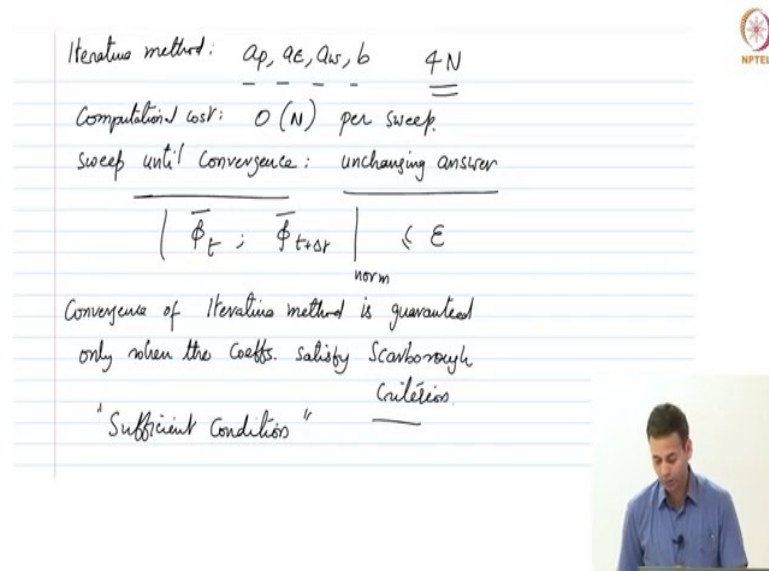 Iterative method: aP, aE, aW, b 4N
NPTEL
Computational cost: O (N) per sweep.
Sweep until convergence: unchanging answer
| ϕ̄t ; ϕ̄t+Δt |norm ≤ ε
Convergence of Iterative method is guaranteed
only when the coeffs. satisfy Scarborough
Criterion.
"Sufficient Condition"